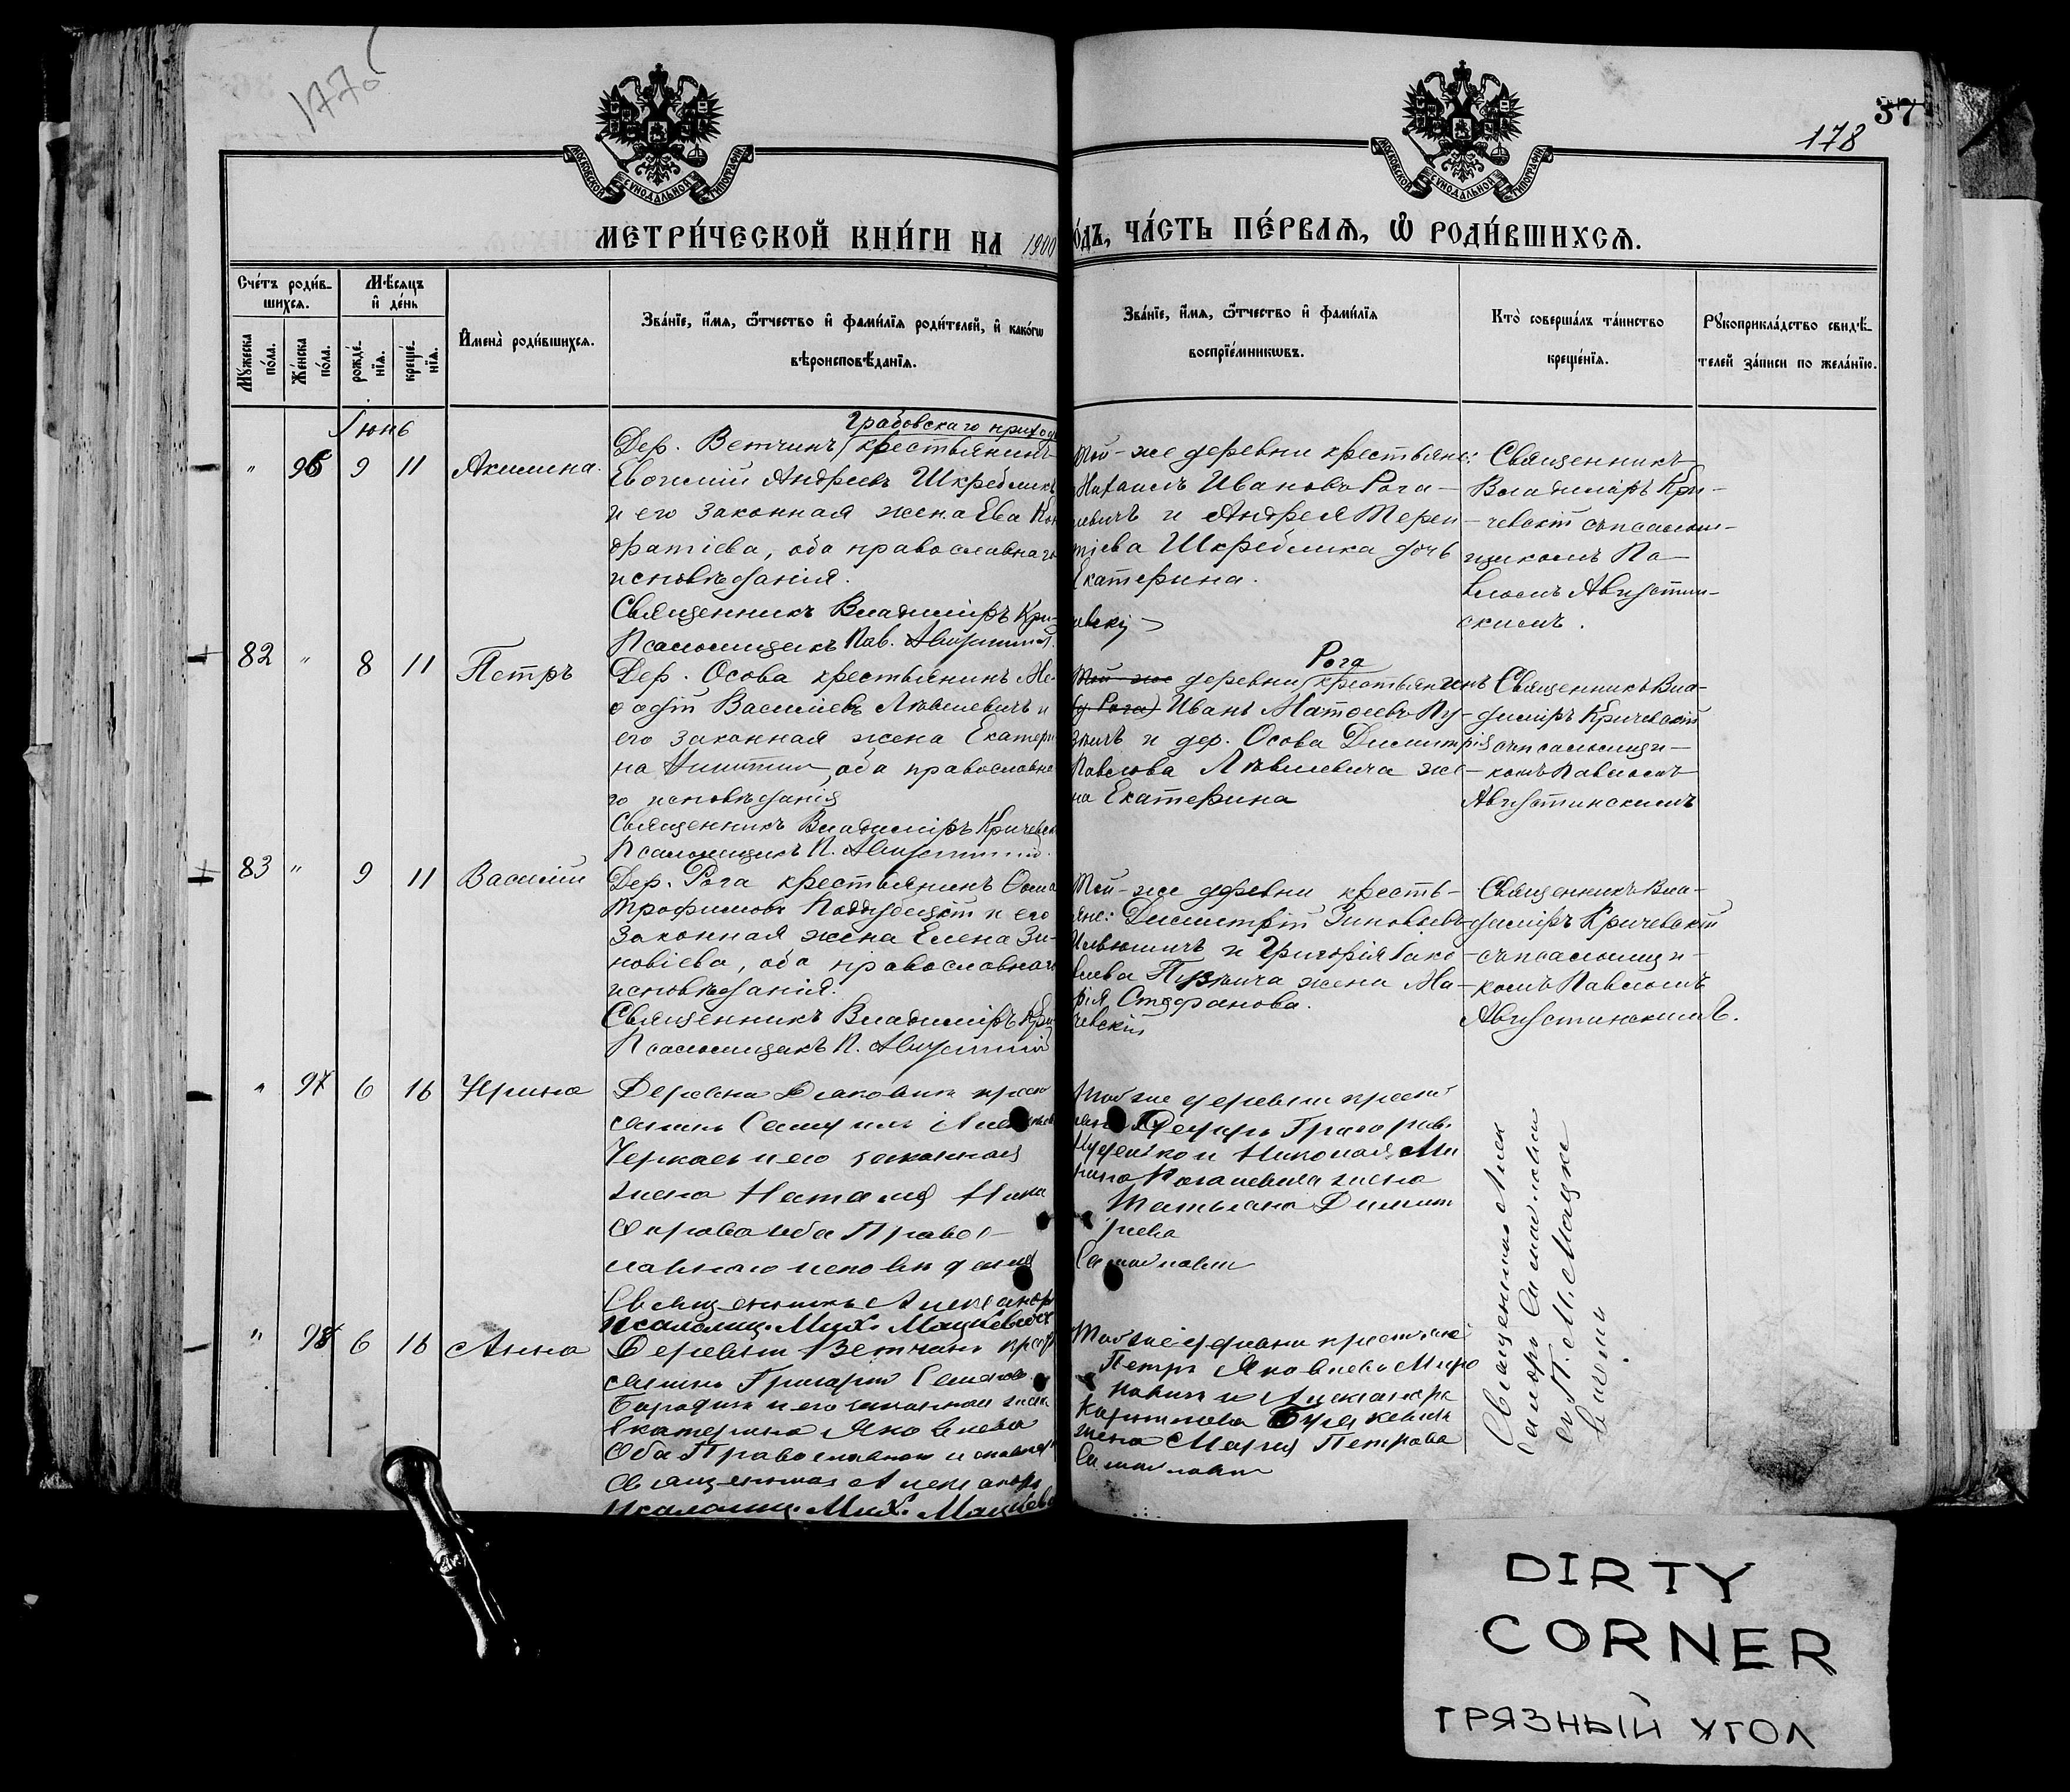 1770
37
178
МОСКОВСКОЙ СѴНОДАЛЬНОЙ ТИПОГРАФІИ
МОСКОВСКОЙ СѴНОДАЛЬНОЙ ТИПОГРАФІИ
МЕТРИ́ЧЕСКОЙ КНИ́ГИ НА 1900
О́ДЪ, ЧА́СТЬ ПЕ́РВАѦ, Ѡ҆ РОДИ́ВШИХСѦ.
Сче́тъ роди́в-
шихсѧ.
Мꙋ́жеска по́ла.
Же́нска по́ла.
Мѣ́сѧцъ
и҆ де́нь
рожде́-
нїѧ.
креще́-
нїѧ.
И҆мена̀ роди́вшихсѧ.
Зва́нїе, и҆́мѧ, ѻ҆́тчество и҆ фами́лїѧ роди́телей, и҆ како́гѡ
вѣроисповѣ́данїѧ.
Зва́нїе, и҆́мѧ, ѻ҆́тчество и҆ фами́лїѧ
воспрїе́мникѡвъ.
Кто̀ соверша́лъ та́инство
креще́нїѧ.
Рꙋкоприкла́дство свидѣ́-
телей за́писи по жела́нїю.
Іюнь
" 96 9 11 Акилина.
Грабовскаго приход
Дер. Ветчинъ крестьянинъ
Евфимій Андреевъ Шкребликъ
и его законная жена Ева Кон
дратіева, оба православнаго
исповѣданія.
Священникъ Владиміръ Кри-
Псаломщикъ Пав.
Той-же деревни крестьяне:
Ивановъ Рога-
левичъ и Андрея Терен
тіева Шкреблика дочь
Екатерина.
Священникъ
Владиміръ Кри-
чевскій съ псалом-
щикомъ Па-
вломъ Августин-
скимъ.
82 " 8 11 Петръ
Дер. Осова крестьянинъ Ме-
Васильевъ и
его законная жена Екатери
на оба православна
го исповѣданія
Священникъ Владиміръ Кричевск
Псаломщикъ П.
Рога
Той-же деревни крестьянинъ
(у Рога) Иванъ
и дер. Осова Димитрія
Павлова же-
на Екатерина
Священникъ Вла-
диміръ Кричевскій
съ псаломщи-
комъ Павломъ
Августинскимъ
83 " 9 11 Василій
Дер. Рога крестьянинъ Ѳома
Трофимовъ Поддубицкій и его
законная жена Елена Зи-
новіева, оба православнаго
исповѣданія.
Священникъ Владиміръ Кри
Псаломщикъ П.
Той-же деревни кресть-
яне: Димитрій Зиновьевъ
и Григорія Яко-
влева жена Ма-
рія Стефанова.
чевскій
Священникъ Вла-
диміръ Кричевскій
съ псаломщи-
комъ Павломъ
Августинскимъ.
" 97 6 16 Ирина
Деревни крест
Самуилъ
Черкасъ и его законная
жена Наталія Ники
форова оба Право-
славнаго исповѣданія
Священникъ Александр
псаломщ. Мих. Мацкевич
Той же деревни крест
Ѳедоръ Григорьев
и Николая Ми
жена
Татьяна Димит
ріева
Самойлович
" 98 6 16 Анна
Деревни Ветчинъ крест
Григорій
и его законная жена
Екатерина Яковлева
Оба Православнаго исповѣд
Священникъ Александръ
псаломщ. Мих. Мацкев
Той же деревни крестьяне
Петръ Яковлевъ Миро
и Александра
жена Марія Петрова
Самойлович
Священникъ Алек
сандръ Самойлович
съ П. М. Мацке
вичемъ
DIRTY
CORNER
ГРЯЗНЫЙ УГОЛ